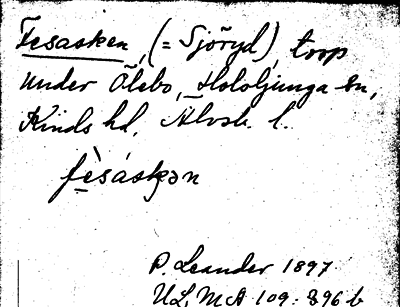 Fesasken, (= Sjöryd), torp
under Ölebo, Hololjunga sn,
Kinds hd, Älvsb. l.
fèsáskən
P. Leander 1897
ULMA 109:896 b